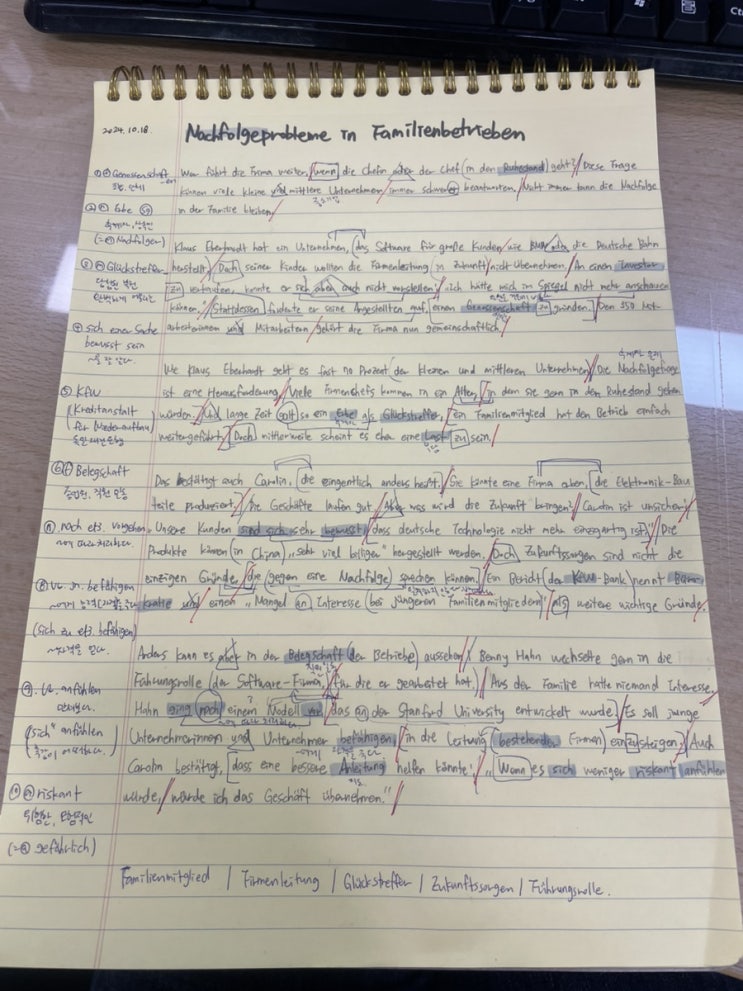 2024.10.18.
Nachfolgeprobleme in Familienbetrieben
Wer führt die Firma weiter, wenn die Chefin oder der Chef (in den Ruhestand) geht? Diese Frage
können viele kleine und mittlere Unternehmen immer schwerer beantworten. Nicht immer kann die Nachfolge
in der Familie bleiben.
Klaus Eberhardt hat ein Unternehmen, (das Software für große Kunden wie BMW oder die Deutsche Bahn
herstellt.) Doch seiner Kinder wollten die Firmenleitung (in Zukunft) nicht übernehmen. An einen Investor
zu verkaufen, konnte er sich aber auch nicht vorstellen. "Ich hätte mich im Spiegel nicht mehr anschauen
können." Stattdessen forderte er seine Angestellten auf, einen Genossenschaft zu gründen. Den 350 Mit-
arbeiterinnen und Mitarbeitern gehört die Firma nun gemeinschaftlich.
Wie Klaus Eberhardt geht es fast 40 Prozent (der kleinen und mittleren Unternehmen). Die Nachfolgefrage
ist eine Herausforderung. Viele Firmenchefs kommen in ein Alter, in dem sie gern in den Ruhestand gehen
würden. Und lange Zeit galt so ein Erbe als Glückstreffer, ein Familienmitglied hat den Betrieb einfach
weitergeführt. Doch mittlerweile scheint es eher eine Last zu sein.
Das bestätigt auch Carolin, (die eingentlich anders heißt.) Sie könnte eine Firma erben, (die Elektronik-Bau
teile produziert.) Die Geschäfte laufen gut. Aber was wird die Zukunft bringen? Carolin ist unsicher.
"Unsere Kunden sind sich sehr bewusst, dass deutsche Technologie nicht mehr einzigartig ist." Die
Produkte können (in China) "sehr viel billiger" hergestellt werden. Doch Zukunftssorgen sind nicht die
einzigen Gründe, die (gegen eine Nachfolge) sprechen können. Ein Bericht (der KfW-Bank) nennt Büro-
kratie und einen "Mangel an Interesse (bei jüngeren Familienmitgliedern)" als weitere wichtige Gründe.
Anders kann es aber in der Belegschaft (der Betriebe) aussehen. Benny Hahn wechselte gern in die
Führungsrolle (der Software-Firma, für die er gearbeitet hat.) Aus der Familie hatte niemand Interesse.
Hahn ging nach einem Modell vor, das an der Stanford University entwickelt wurde. Es soll junge
Unternehmerinnen und Unternehmer befähigen, in die Leitung (bestehender Firmen) einzusteigen. Auch
Carolin bestätigt, dass eine bessere Anleitung helfen könnte. "Wenn es sich weniger riskant anfühlen
würde, würde ich das Geschäft übernehmen."
① ⓕ Genossenschaft -en
조합, 단체
② ⓝ Erbe
(= ⓜ Nachfolger)
③ ⓜ Glückstreffer
④ sich einer Sache
bewusst sein
~을 잘 알다.
⑤ KfW
(Kreditanstalt
für Wiederaufbau)
독일재건은행
⑥ ⓕ Belegschaft
종업원, 직원 모두
⑦ nach ets. vorgehen
~에 따라 처리하다.
⑧ Vt. jn. befähigen
(sich zu ets. befähigen)
⑨ Vt. anfühlen
만져보다.
"sich" anfühlen
⑩ ⓐ riskant
위험한, 모험적인
(= ⓐ gefährlich)
Familienmitglied / Firmenleitung / Glückstreffer / Zukunftssorgen / Führungsrolle.